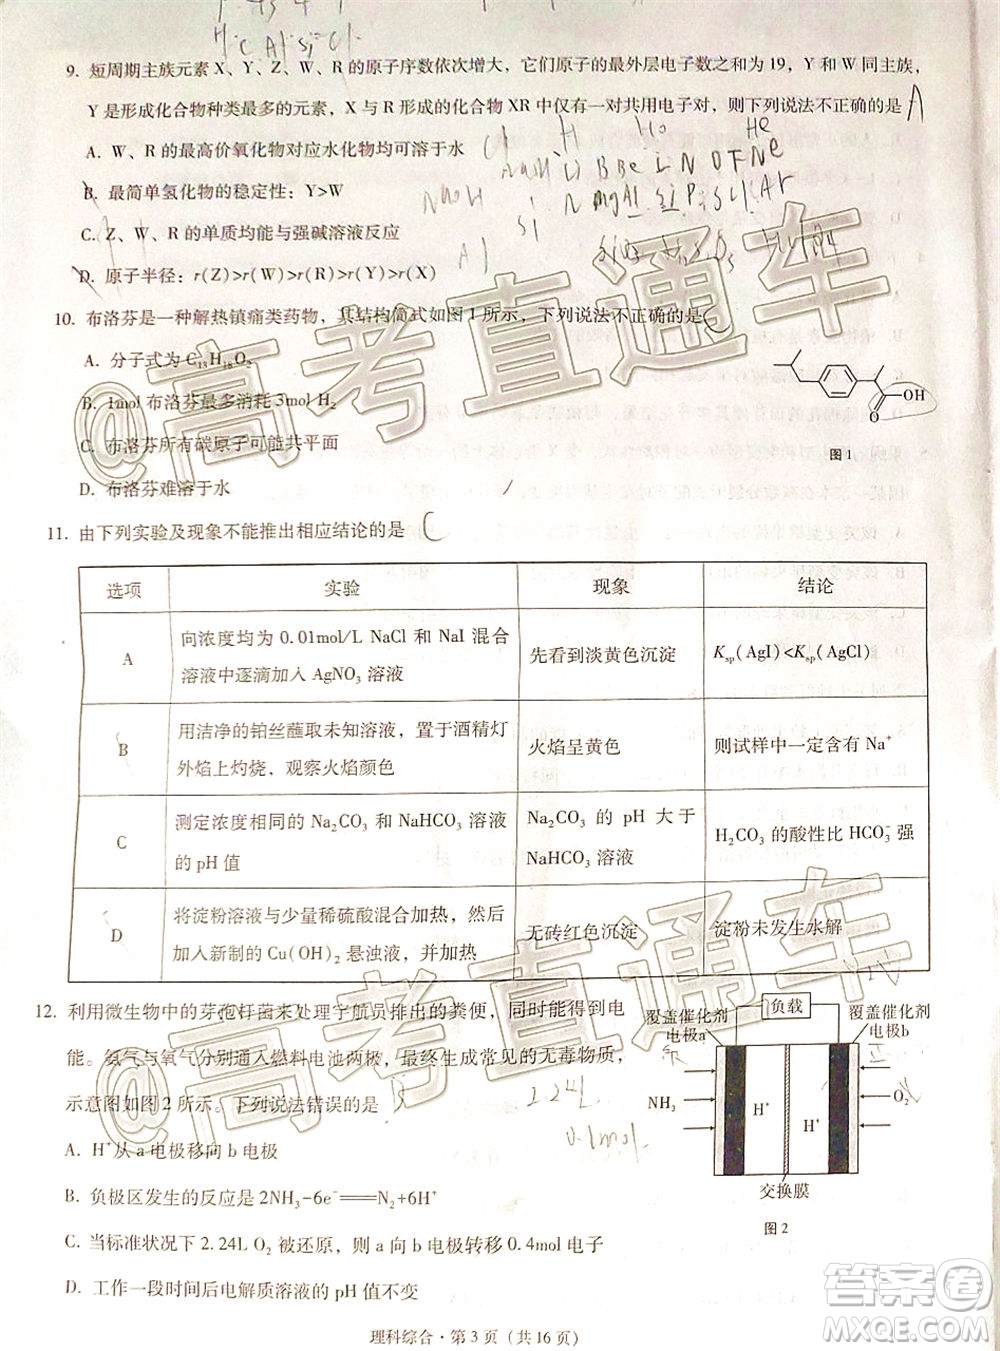 H C Al Si Cl
9. 短周期主族元素 X、Y、Z、W、R 的原子序数依次增大，它们原子的最外层电子数之和为 19，Y 和 W 同主族，
Y 是形成化合物种类最多的元素，X 与 R 形成的化合物 XR 中仅有一对共用电子对，则下列说法不正确的是 A
A. W、R 的最高价氧化物对应水化物均可溶于水
B. 最简单氢化物的稳定性：Y>W
C. Z、W、R 的单质均能与强碱溶液反应
D. 原子半径：r(Z)>r(W)>r(R)>r(Y)>r(X)
10. 布洛芬是一种解热镇痛类药物，其结构简式如图 1 所示，下列说法不正确的是 C
A. 分子式为 C₁₃H₁₈O₂
B. 1mol 布洛芬最多消耗 3mol H₂
C. 布洛芬所有碳原子可能共平面
D. 布洛芬难溶于水
OH
O
图 1
11. 由下列实验及现象不能推出相应结论的是 C
选项 实验 现象 结论
A 向浓度均为 0.01mol/L NaCl 和 NaI 混合溶液中逐滴加入 AgNO₃ 溶液 先看到淡黄色沉淀 Ksp(AgI)<Ksp(AgCl)
B 用洁净的铂丝蘸取未知溶液，置于酒精灯外焰上灼烧，观察火焰颜色 火焰呈黄色 则试样中一定含有 Na⁺
C 测定浓度相同的 Na₂CO₃ 和 NaHCO₃ 溶液的 pH 值 Na₂CO₃ 的 pH 大于 NaHCO₃ 溶液 H₂CO₃ 的酸性比 HCO₃⁻ 强
D 将淀粉溶液与少量稀硫酸混合加热，然后加入新制的 Cu(OH)₂ 悬浊液，并加热 无砖红色沉淀 淀粉未发生水解
12. 利用微生物中的芽孢杆菌来处理宇航员排出的粪便，同时能得到电
能。氨气与氧气分别通入燃料电池两极，最终生成常见的无毒物质，
示意图如图 2 所示。下列说法错误的是
A. H⁺从 a 电极移向 b 电极
B. 负极区发生的反应是 2NH₃-6e⁻══N₂+6H⁺
C. 当标准状况下 2.24L O₂ 被还原，则 a 向 b 电极转移 0.4mol 电子
D. 工作一段时间后电解质溶液的 pH 值不变
2.24L
0.1mol
负载
覆盖催化剂
电极a
覆盖催化剂
电极b
NH₃
H⁺
H⁺
O₂
交换膜
图 2
理科综合·第 3 页（共 16 页）
@高考直通车
@高考直通车
答案卷
MXQE.COM